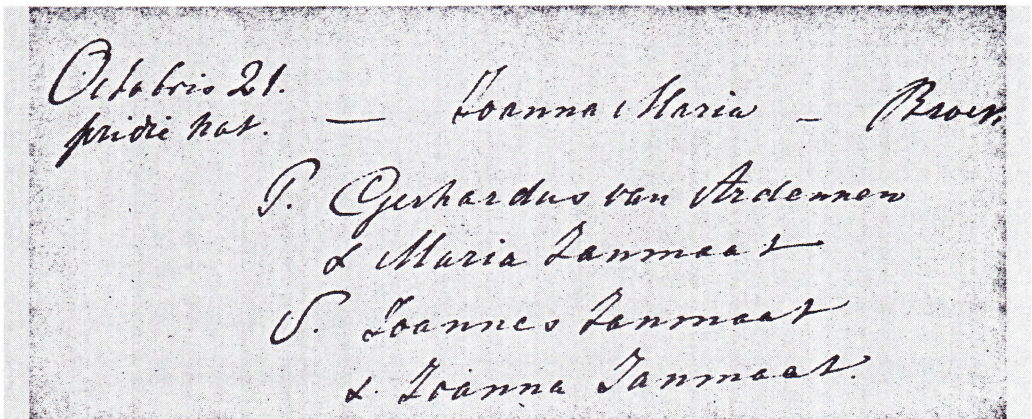 Octobris 21.
pridie nat. — Joanna Maria –
P. Gerhardus van Ardennen
& Maria Janmaat
S. Joannes Janmaat
& Joanna Janmaat.